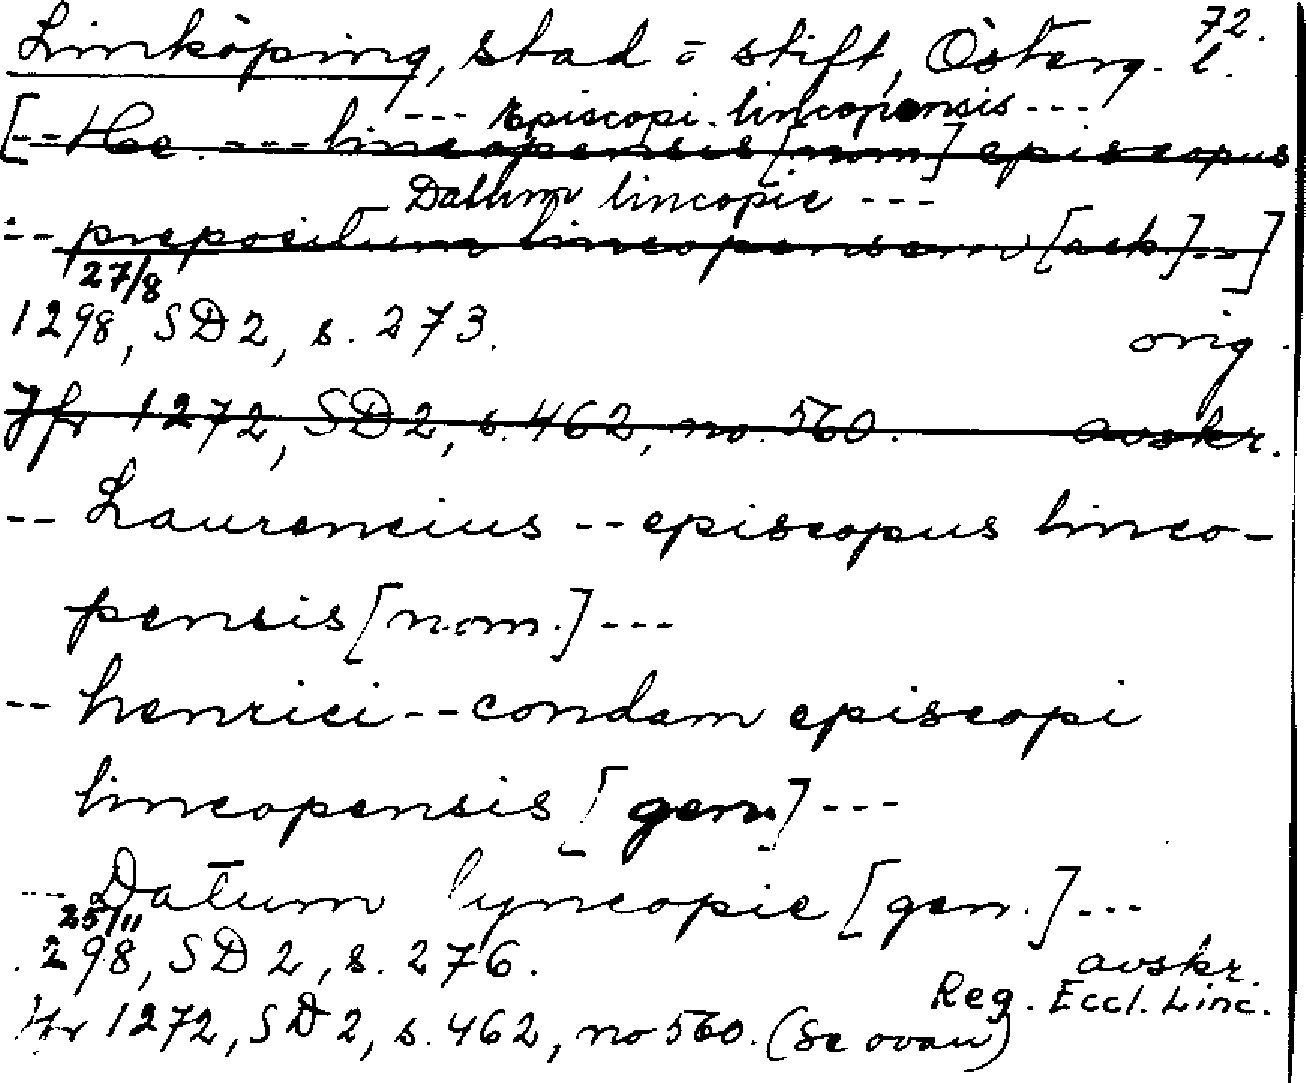 72.
Linköping, stad o stift, Österg. l.
--- Episcopi lincopensis ---
[-- He --- lincopensis [nom] episcopus
Datum lincopie ---
-- prepositum lincopensem [ack] -- ]
27/8
1298, SD 2, s. 273. orig.
Jfr 1272, SD 2, s. 462, no. 560. avskr.
-- Laurencius -- episcopus linco-
pensis [nom.] ---
-- henrici -- condam episcopi
lincopensis [gen.] ---
--- Datum lyncopie [gen.] ---
25/11
1298, SD 2, s. 276. avskr.
Reg. Eccl. Linc.
Jfr 1272, SD 2, s. 462, no 560. (Se ovan)